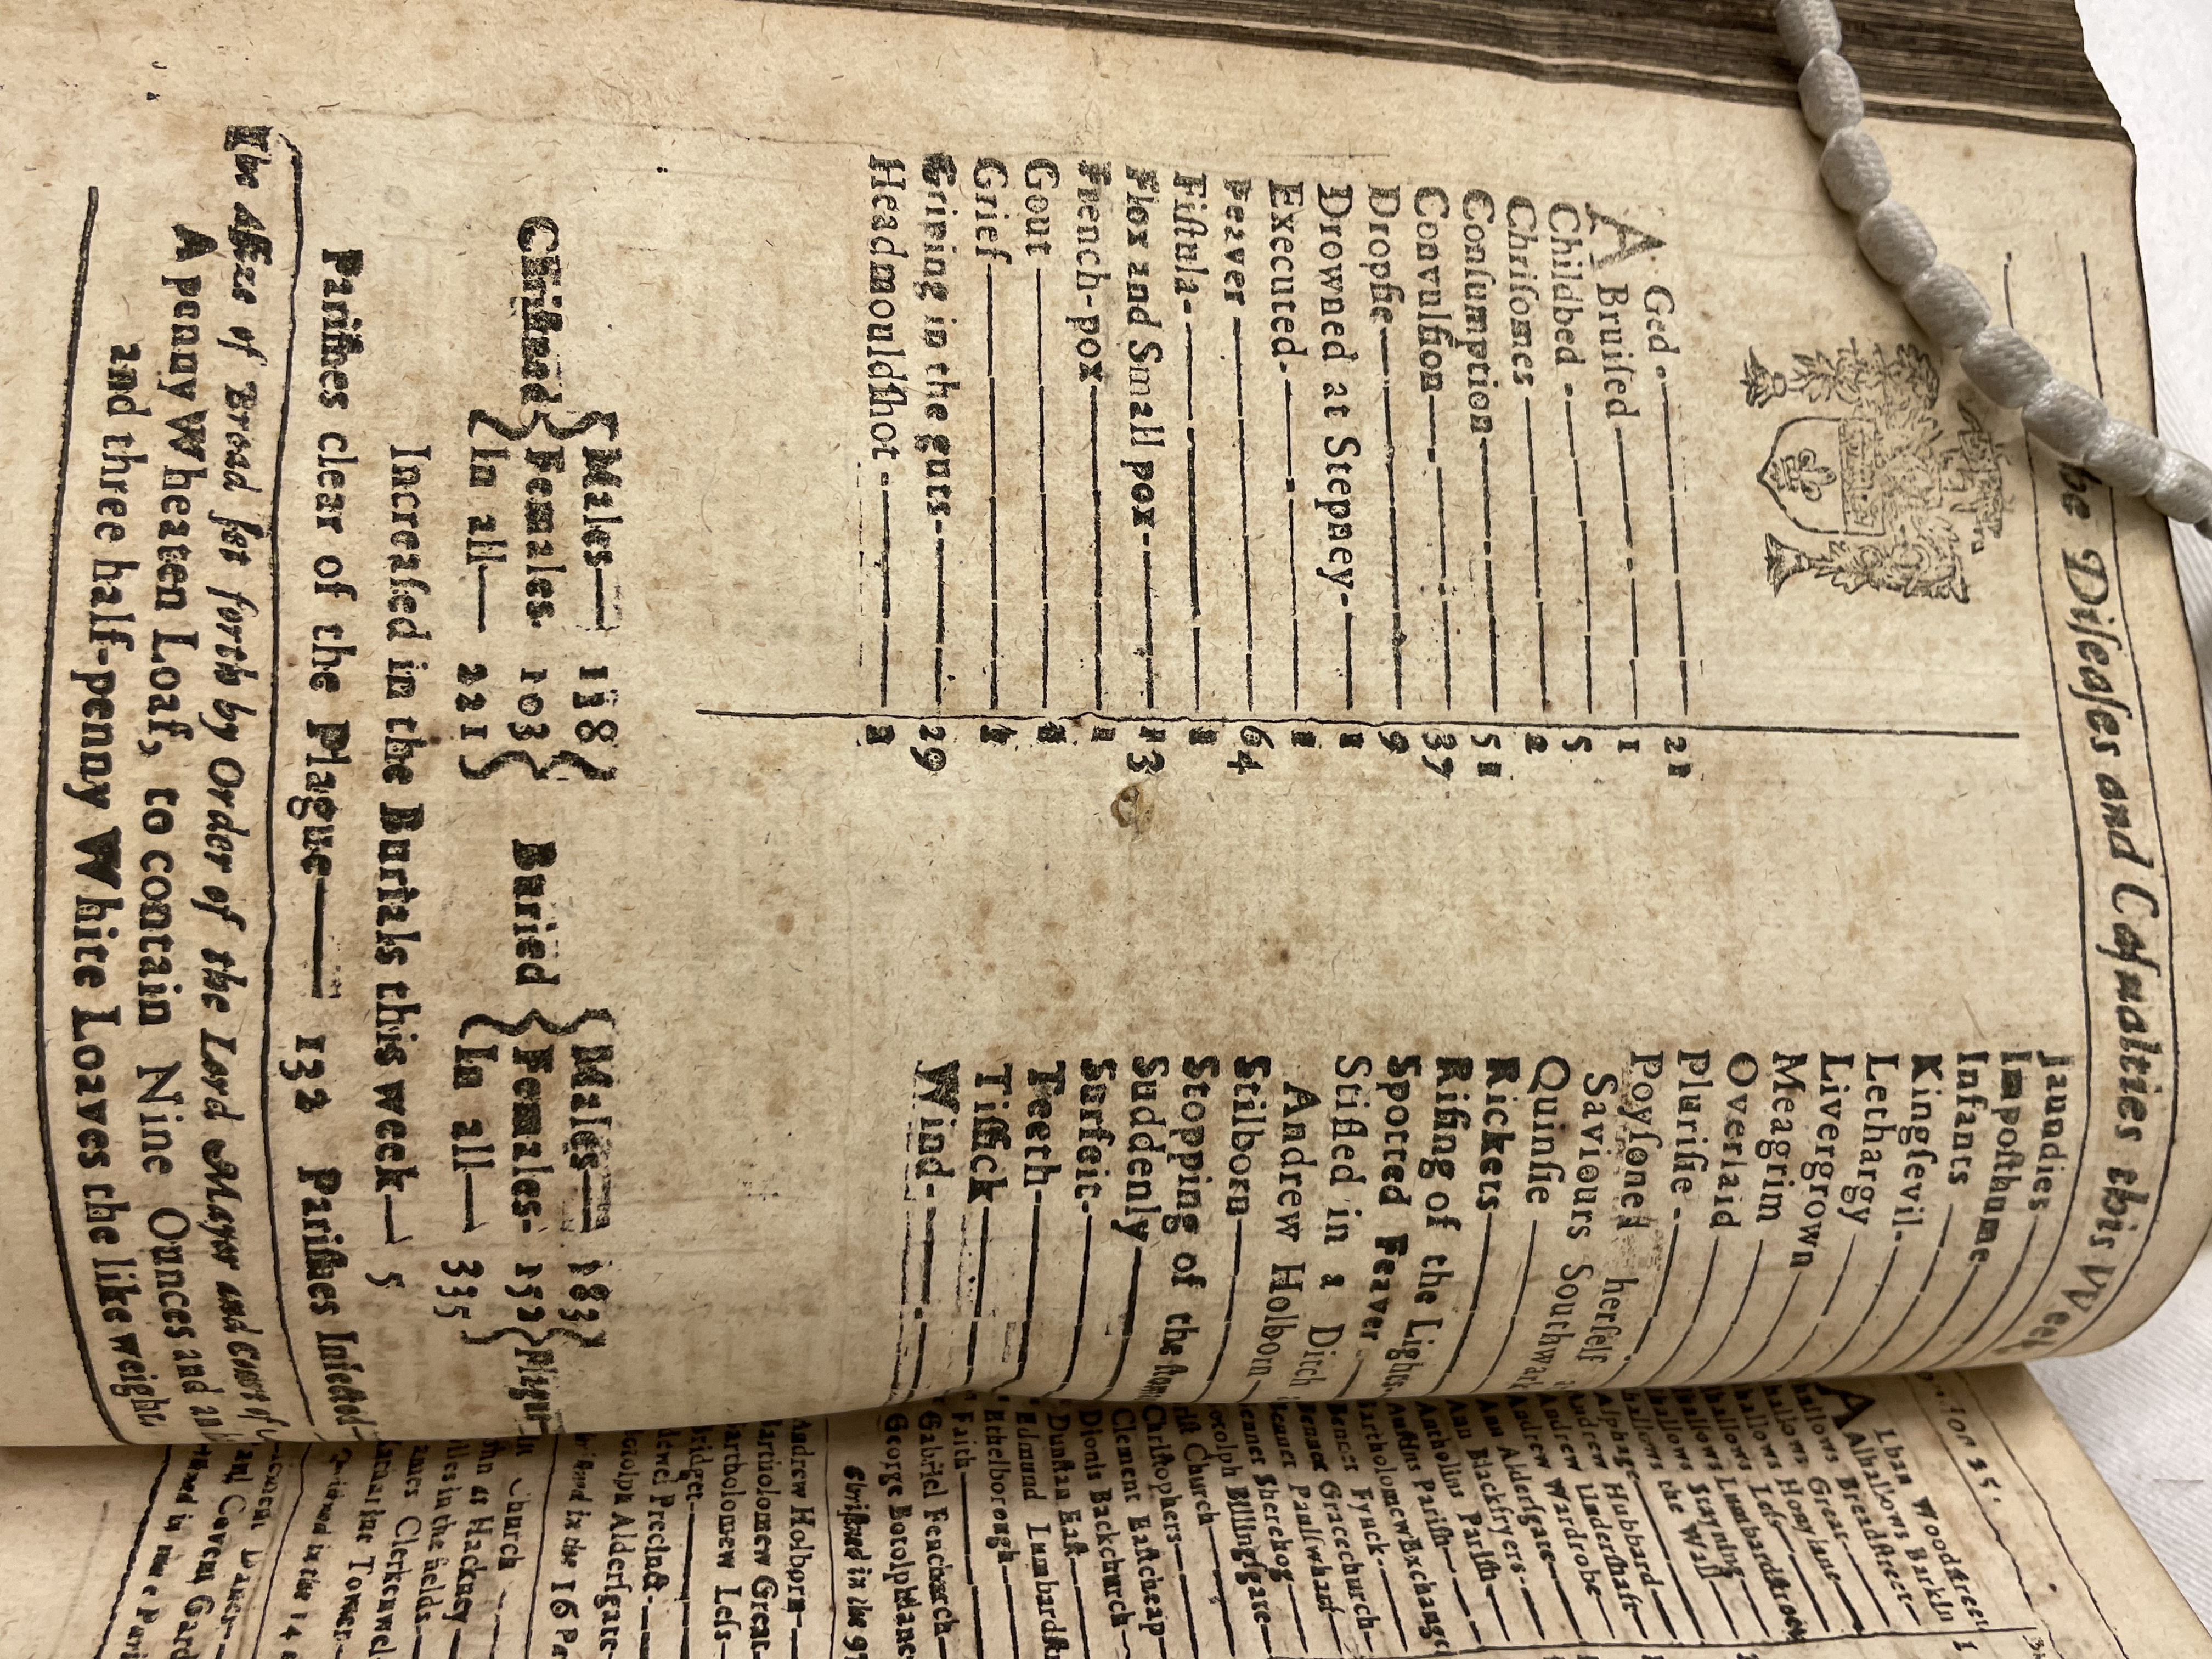 The Diseases and Casualties this Week
AGed 21
Bruised 1
Childbed 5
Chrisomes 2
Consumption 51
Convulsion 37
Dropsie 9
Drowned at Stepney 1
Executed 1
Feaver 64
Fistula 1
Flox and Small pox 13
French-pox 1
Gout
Grief
Griping in the guts 29
Headmouldshot
Jaundies
Imposthume
Infants
Kingsevil
Lethargy
Livergrown
Meagrim
Overlaid
Plurisie
Poysoned herself
Saviours Southwark
Quinsie
Rickets
Rising of the Lights
Spotted Feaver
Stifled in a Ditch
Andrew Holborn
Stilborn
Stopping of the
Suddenly
Surfeit
Teeth
Tissick
Wind
Christned { Males 118 Females 103 In all 221 }
Buried { Males 183 Females 152 In all 335 }
Increased in the Burials this week 5
Parishes clear of the Plague 132 Parishes Infected
The Assize of Bread set forth by Order of the Lord Mayor and Court of
A penny Wheaten Loaf, to contain Nine Ounces and
and three half-penny White Loaves the like weight.
ALban Woodstreet
Alhallows Barkin
Alhallows Breadstreet
Great
Honylane
Less
Lumbardstreet
Stayning
the Wall
Alphage
Andrew Hubbard
Andrew Undershaft
Andrew Wardrobe
Ann Aldersgate
Ann Blackfryers
Antholins Parish
Austins Parish
Bartholomew Exchange
Bennet Fynck
Bennet Gracechurch
Bennet Paulswharf
Bennet Sherehog
Botolph Billingsgate
Christ Church
Christophers
Clement Eastcheap
Dionis Backchurch
Dunstan East
Edmund Lumbardstr
Ethelborough
Faith
Gabriel Fenchurch
George Botolphlane
Christned in the 97
Andrew Holborn
Bartholomew Great
Bartholomew Less
Bridget
Bridewel Precinct
Botolph Aldersgate
Christned in the 16 Pa